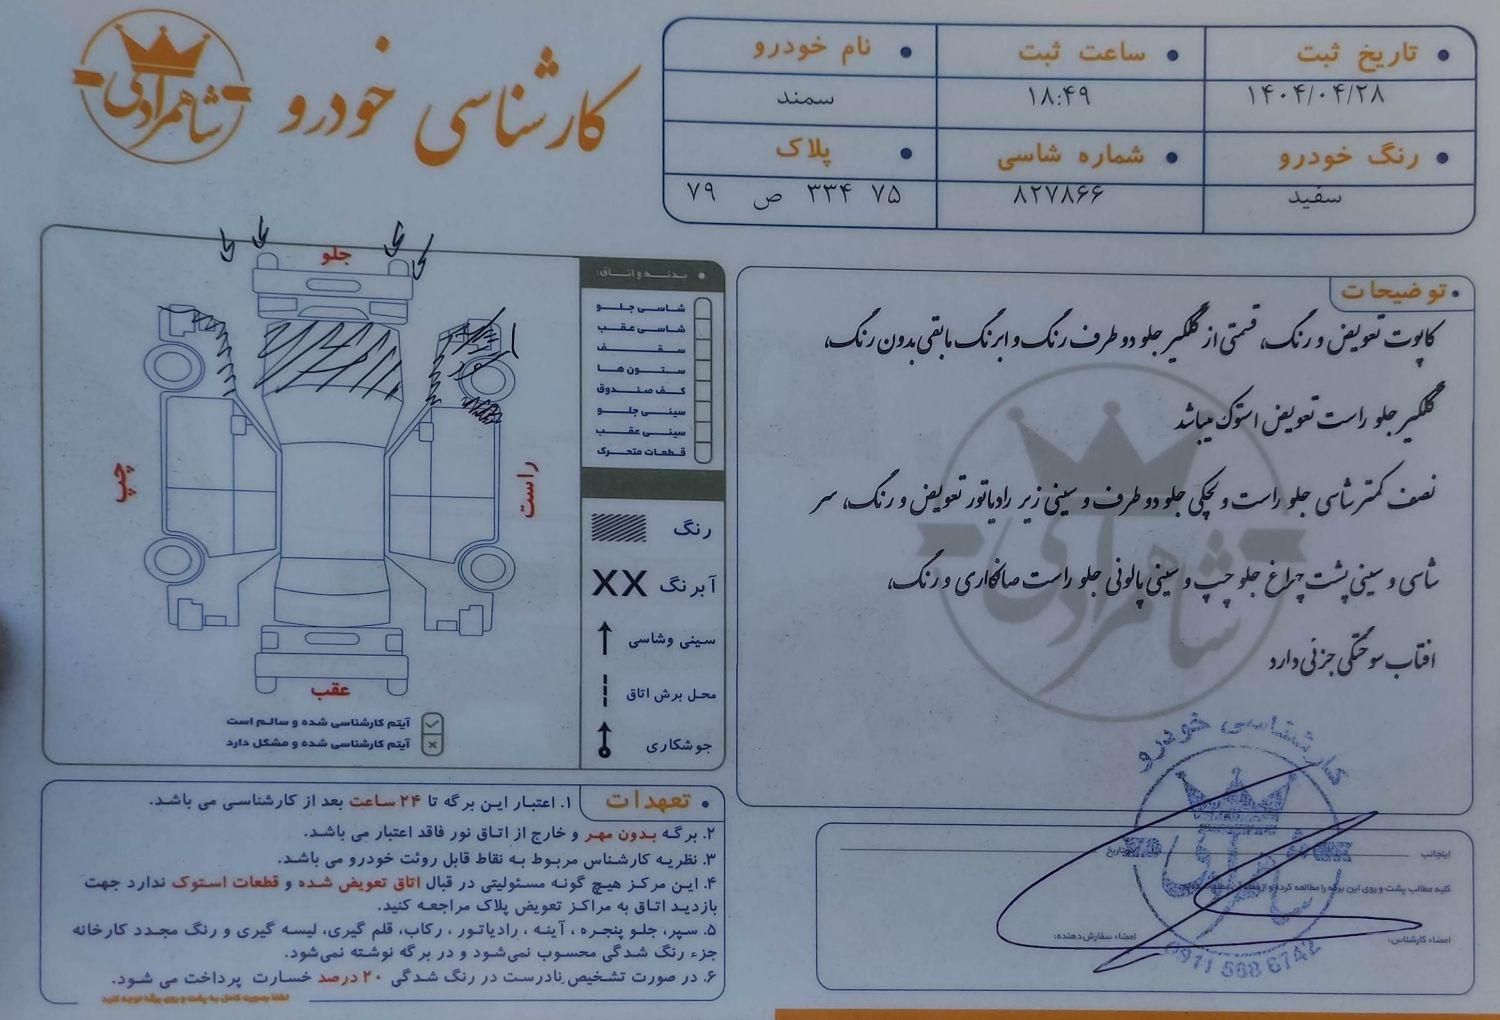 شاهمرادی
کارشناسی خودرو
تاریخ ثبت
ساعت ثبت
نام خودرو
۱۴۰۴/۰۴/۲۸
۱۸:۴۹
سمند
رنگ خودرو
شماره شاسی
پلاک
سفید
۸۲۷۸۶۶
۷۵ ۳۳۴ ص ۷۹
توضیحات
کاپوت تعویض و رنگ، قسمتی از گلگیر جلو دو طرف رنگ و ابرنگ مابقی بدون رنگ،
گلگیر جلو راست تعویض استوک میباشد
نصف کمتر شاسی جلو راست و لچکی جلو دو طرف و سینی زیر رادیاتور تعویض و رنگ، سر
شاسی و سینی پشت چراغ جلو چپ و سینی پالونی جلو راست صافکاری و رنگ،
افتاب سوختگی جزئی دارد
جلو
چپ
راست
عقب
آیتم کارشناسی شده و سالم است
آیتم کارشناسی شده و مشکل دارد
بدنه و اتاق:
شاسی جلو
شاسی عقب
سقف
ستون ها
کف صندوق
سینی جلو
سینی عقب
قطعات متحرک
رنگ
آبرنگ XX
سینی وشاسی
محل برش اتاق
جوشکاری
تعهدات
۱. اعتبار این برگه تا ۲۴ ساعت بعد از کارشناسی می باشد.
۲. برگه بدون مهر و خارج از اتاق نور فاقد اعتبار می باشد.
۳. نظریه کارشناس مربوط به نقاط قابل روئت خودرو می باشد.
۴. این مرکز هیچ گونه مسئولیتی در قبال اتاق تعویض شده و قطعات استوک ندارد جهت
بازدید اتاق به مراکز تعویض پلاک مراجعه کنید.
۵. سپر، جلو پنجره، آینه، رادیاتور، رکاب، قلم گیری، لیسه گیری و رنگ مجدد کارخانه
جزء رنگ شدگی محسوب نمی‌شود و در برگه نوشته نمی‌شود.
۶. در صورت تشخیص نادرست در رنگ شدگی ۲۰ درصد خسارت پرداخت می شود.
لطفا بصورت کامل به پشت و روی برگه توجه کنید
اینجانب
تاریخ
کلیه مطالب پشت و روی این برگه را مطالعه کرده و از
امضاء کارشناس:
امضاء سفارش‌دهنده:
کارشناسی خودرو
شاهمرادی
0911 568 6742